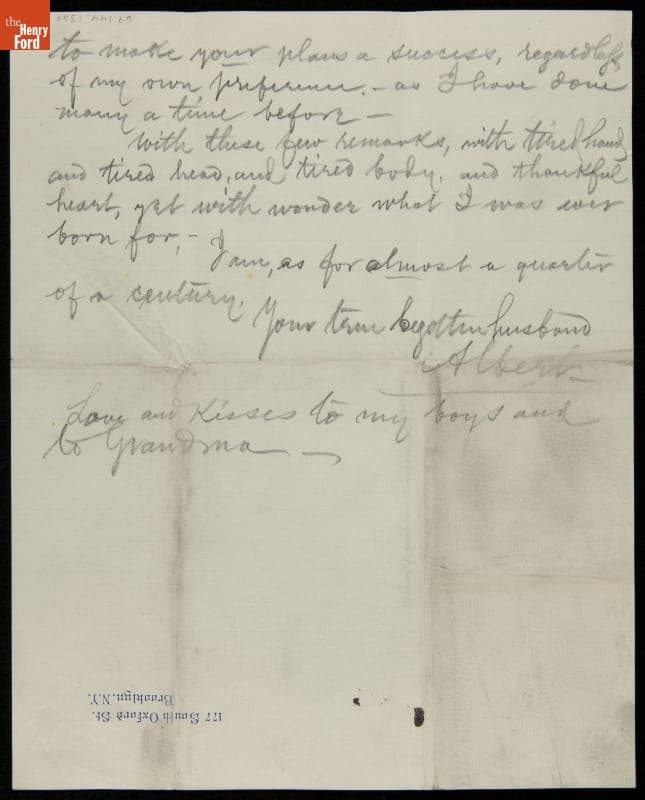 the
Henry
Ford
69.144.1364
to make your plans a success, regardless
of my own preference. - as I have done
many a time before -
With these few remarks, with tired hand
and tired head, and tired body, and thankful
heart, yet with wonder what I was ever
born for, -
I am, as for almost a quarter
of a century,
Your husband
Albert
Love and Kisses to my boys and
to Grandma -
177 South Oxford St.
Brooklyn. N.Y.